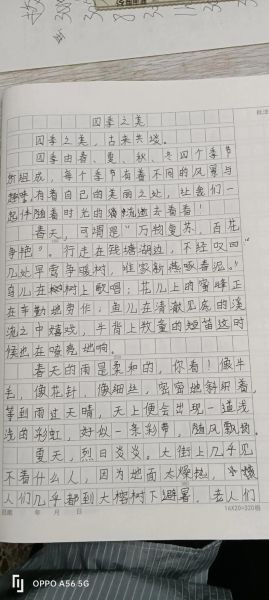 四季之美
四季之美，古来共谈。
四季由春、夏、秋、冬四个季节
所组成，每个季节有着不同的风景与
趣味，有着自己的美丽之处，让我们一
起伴随着时光的流逝去看看！
春天，可谓是“万物复苏，百花
争艳”。行走在钱塘湖边，不经叹四“
几处早莺争暖树，谁家新燕啄春泥。”
鸟儿在树上歌唱；花儿上的蜜蜂正
在辛勤地劳作；鱼儿在清澈见底的溪
流之中嬉戏，牛背上牧童的短笛这时
候也在嘹亮地响。
春天的雨是柔和的，你看！像牛
毛，像花针，像细丝，密密地斜织着，
等到雨过天晴，天上便会出现一道浅
浅的彩虹，好似一条彩带，随风飘扬。
夏天，烈日炎炎。大街上几乎见
不着什么人，因为地面太燥热，
人们几乎都到大榕树下避暑，老人们
年 月 日
16X20=320格
OPPO A56 5G